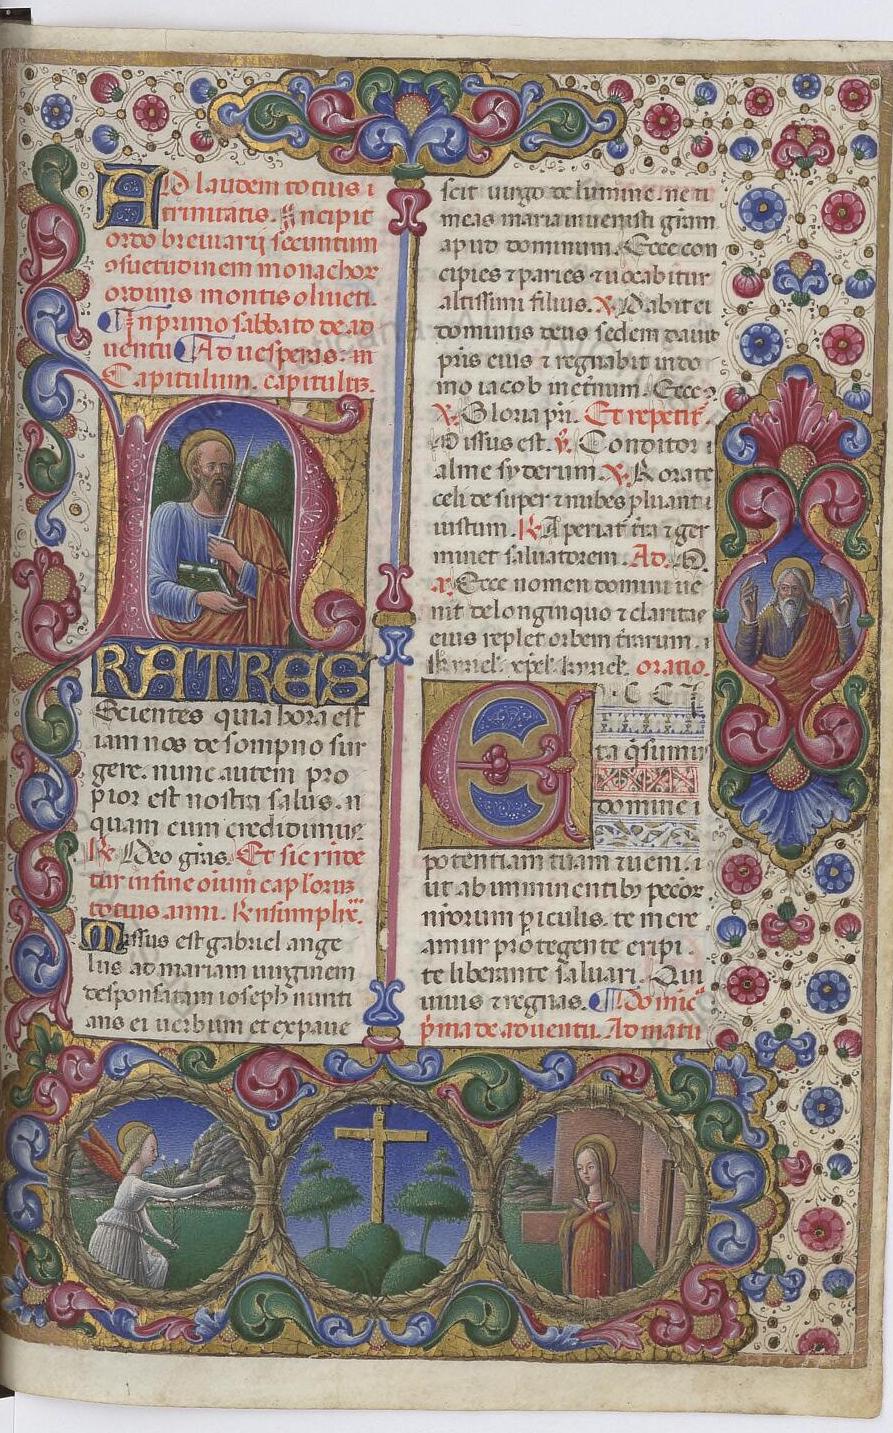 AD laudem totius i
trinitatis. Incipit
ordo breuiarij secuntum
ɔsuetudinem monachoꝝ
ordinis montis oliueti.
Inprimo sabbato de ad
uentu Ad uesperas. in
Capitulum. capituluꝫ.
FRATRES
Scientes quia hora est
iam nos de sompno sur
gere. nunc autem pro
pior est nostra salus. 
quam cum credidimus.
Deo grãs. Et sic rñde
tur in fine oium caploruꝫ
totius anni.
Missus est gabriel ange
lus ad mariam uirginem
desponsatam ioseph nunti
ans ei uerbum et expaue
scit uirgo de lumine. ne ti
meas maria inuenisti grãm
apud dominum. Ecce con
cipies ⁊ paries ⁊ uocabitur
altissimi filius. ꝟ. Dabit ei
dominus deus sedem dauit
pris eius ⁊ regnabit in do
mo iacob in etnum. Ecce
ꝟ. Gloria pri. Et repetit.
Missus est. ꝟ. Conditor
alme syderum. ꝟ. Rorate
celi de super ⁊ nubes pluant
iustum. ℟ Aperiat tra ⁊ ger
minet saluatorem. Ad.
Ecce nomen domini ue
nit de longinquo ⁊ claritas
eius replet orbem trarum.
kyriel. xpel. kyriel. oratio.
EXCI
ta qsumus
domine
potentiam tuam ⁊ ueni.
ut ab imminentibꝫ peccoꝝ
nrorum piculis. te mere
amur protegente eripi
te liberante saluari. Qui
uiuis ⁊ regnas. Dominica
pma de aduentu. Ad matu